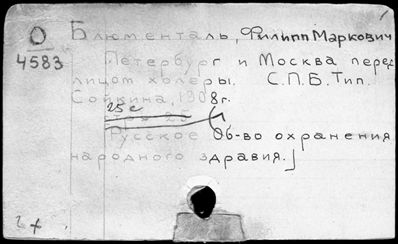 О Блюменталь, Филипп Маркович
4583 Петербург и Москва перед
лицом холеры. С.П.Б. Тип.
Сойкина, 1908г.
25 с
Русское Об-во охранения
народного здравия.]